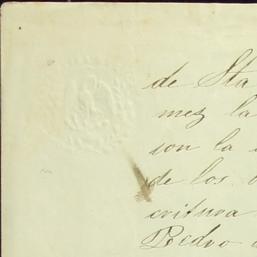 de Sta
mez la
ion la
de los
critura
Pedro